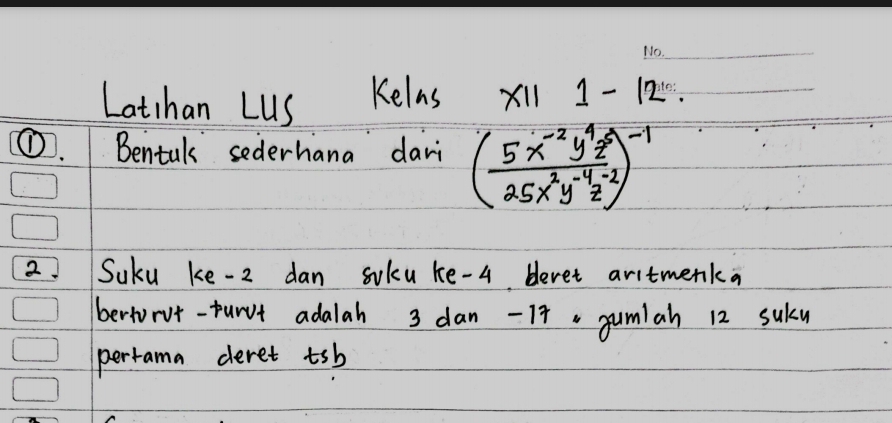 No.
Date:
Latihan LUS Kelas XII 1 - 12.
1. Bentuk sederhana dari (5x⁻²y⁴z⁵ / 25x²y⁻⁴z⁻²)⁻¹
2. Suku ke-2 dan suku ke-4 deret aritmetika
berturut-turut adalah 3 dan -17. Jumlah 12 suku
pertama deret tsb